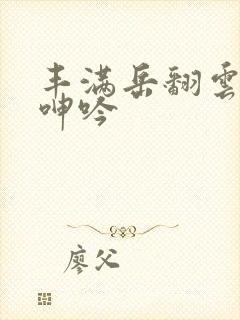 丰满岳翻雲
呻吟
廖父